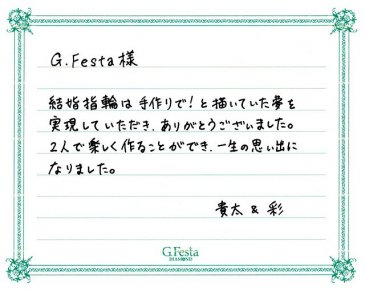 G.Festa様
結婚指輪は手作りで！と描いていた夢を
実現していただき、ありがとうございました。
2人で楽しく作ることができ、一生の思い出に
なりました。
貴太 & 彩
G.Festa
DIAMOND